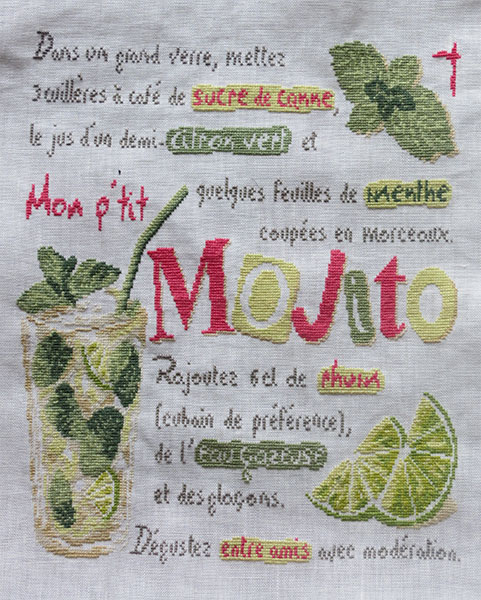 Dans un grand verre, mettez
3 cuillères à café de sucre de canne,
le jus d'un demi-citron vert et
Mon p'tit
quelques feuilles de menthe
coupées en morceaux.
Mojito
Rajoutez 6 cl de rhum
(cubain de préférence),
de l'eau gazeuse
et des glaçons.
Dégustez entre amis avec modération.